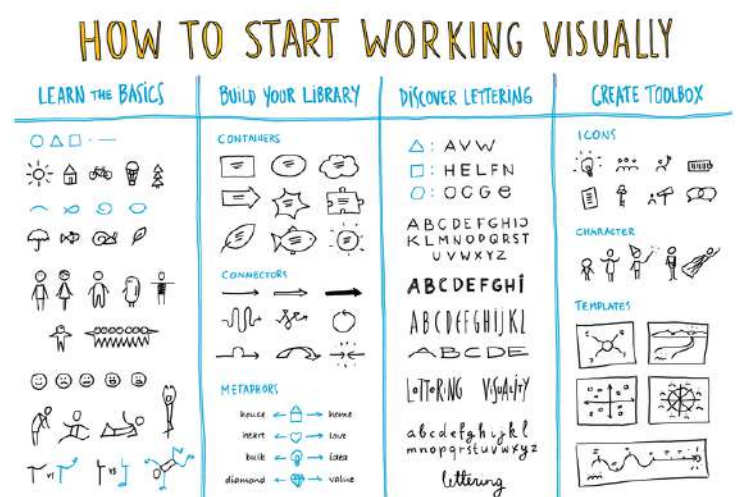 HOW TO START WORKING VISUALLY
LEARN THE BASICS
BUILD YOUR LIBRARY
CONTAINERS
CONNECTORS
METAPHORS
house home
heart love
bulb idea
diamond value
DISCOVER LETTERING
: A V W
: H E L F N
: O C G e
A B C D E F G H I J
K L M N O P Q R S T
U V W X Y Z
A B C D E F G H i
A B C D E F G H I J K L
A B C D E
LETTERING VISUALITY
a b c d e f g h i j k l
m n o p q r s t u v w x y z
lettering
CREATE TOOLBOX
ICONS
CHARACTER
TEMPLATES